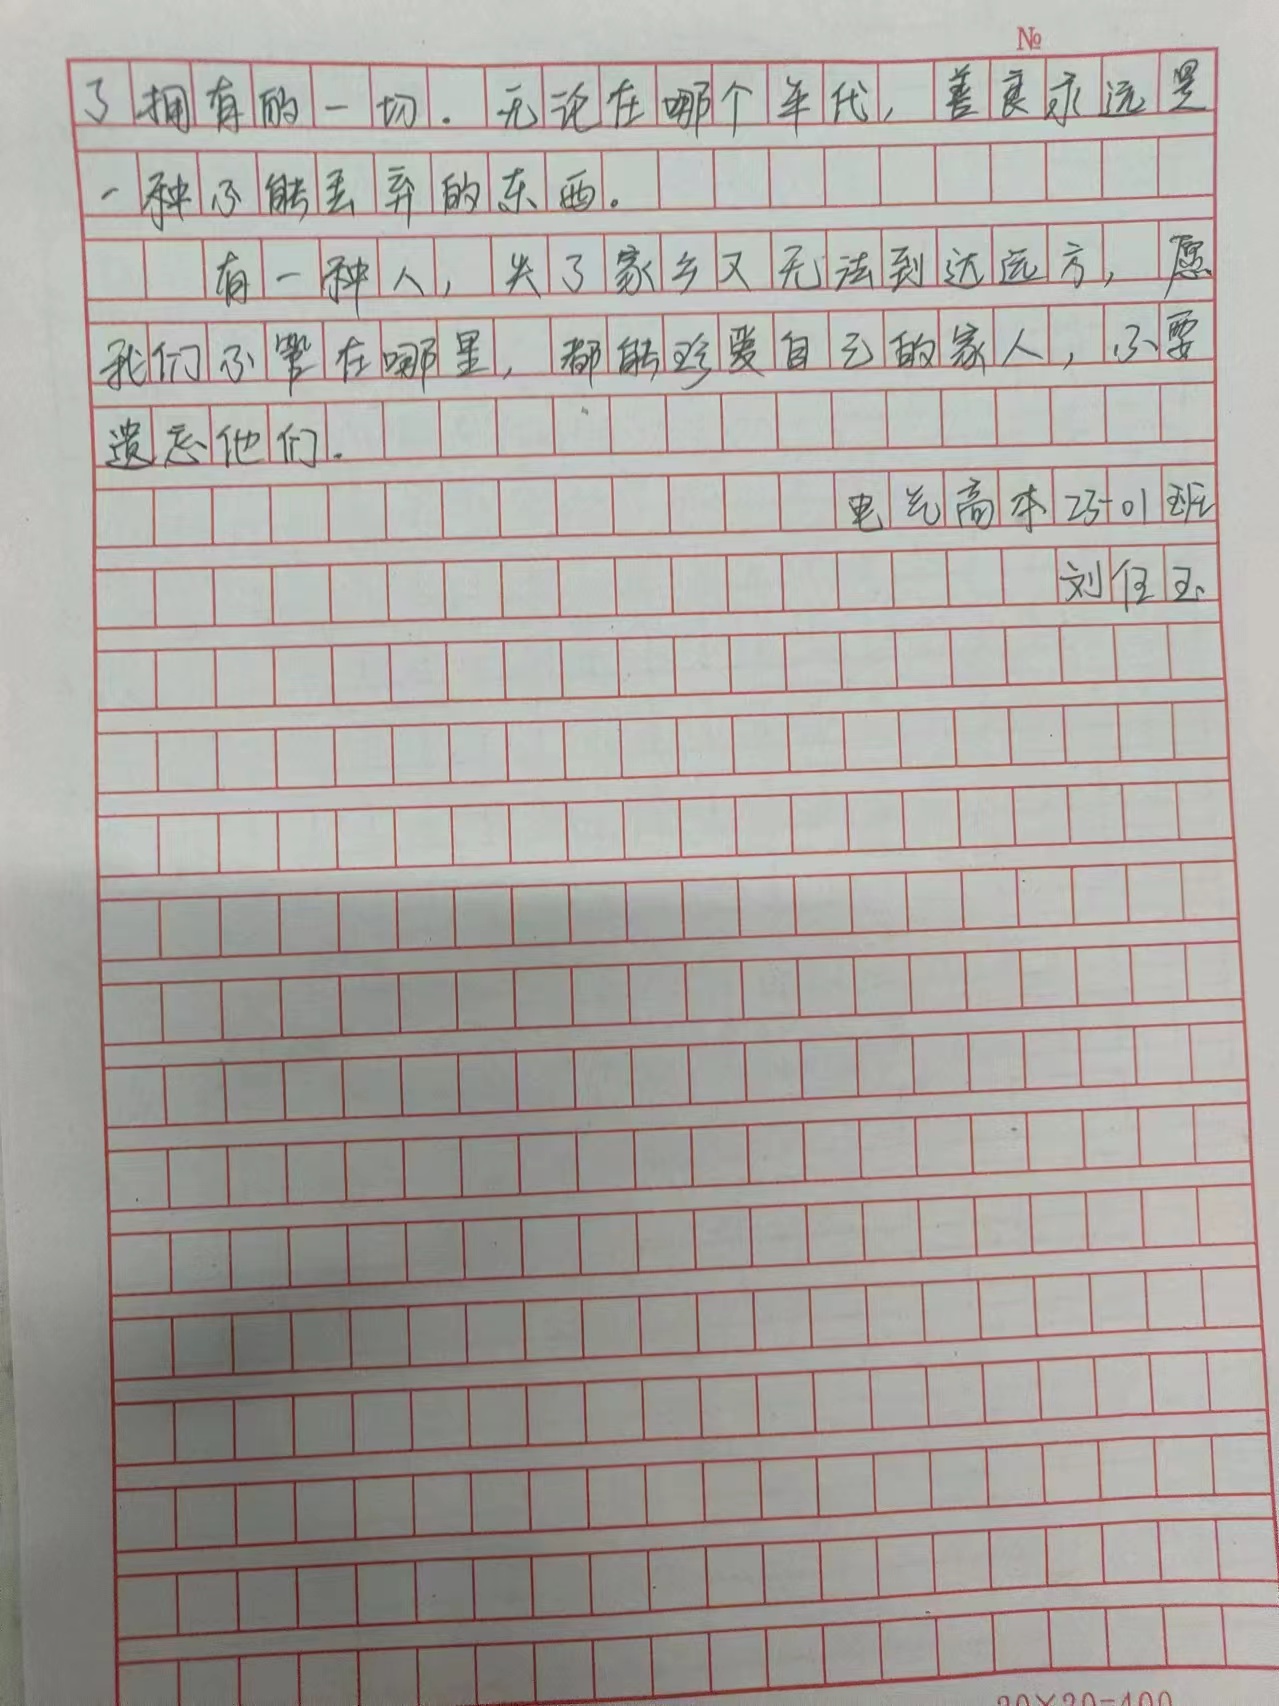 №
了拥有的一切.无论在哪个年代,善良永远是
一种不能丢弃的东西。
有一种人,失了家乡又无法到达远方,愿
我们不管在哪里,都能珍爱自己的家人,不要
遗忘他们.
电气高本23-01班
刘任玉
20×20=400